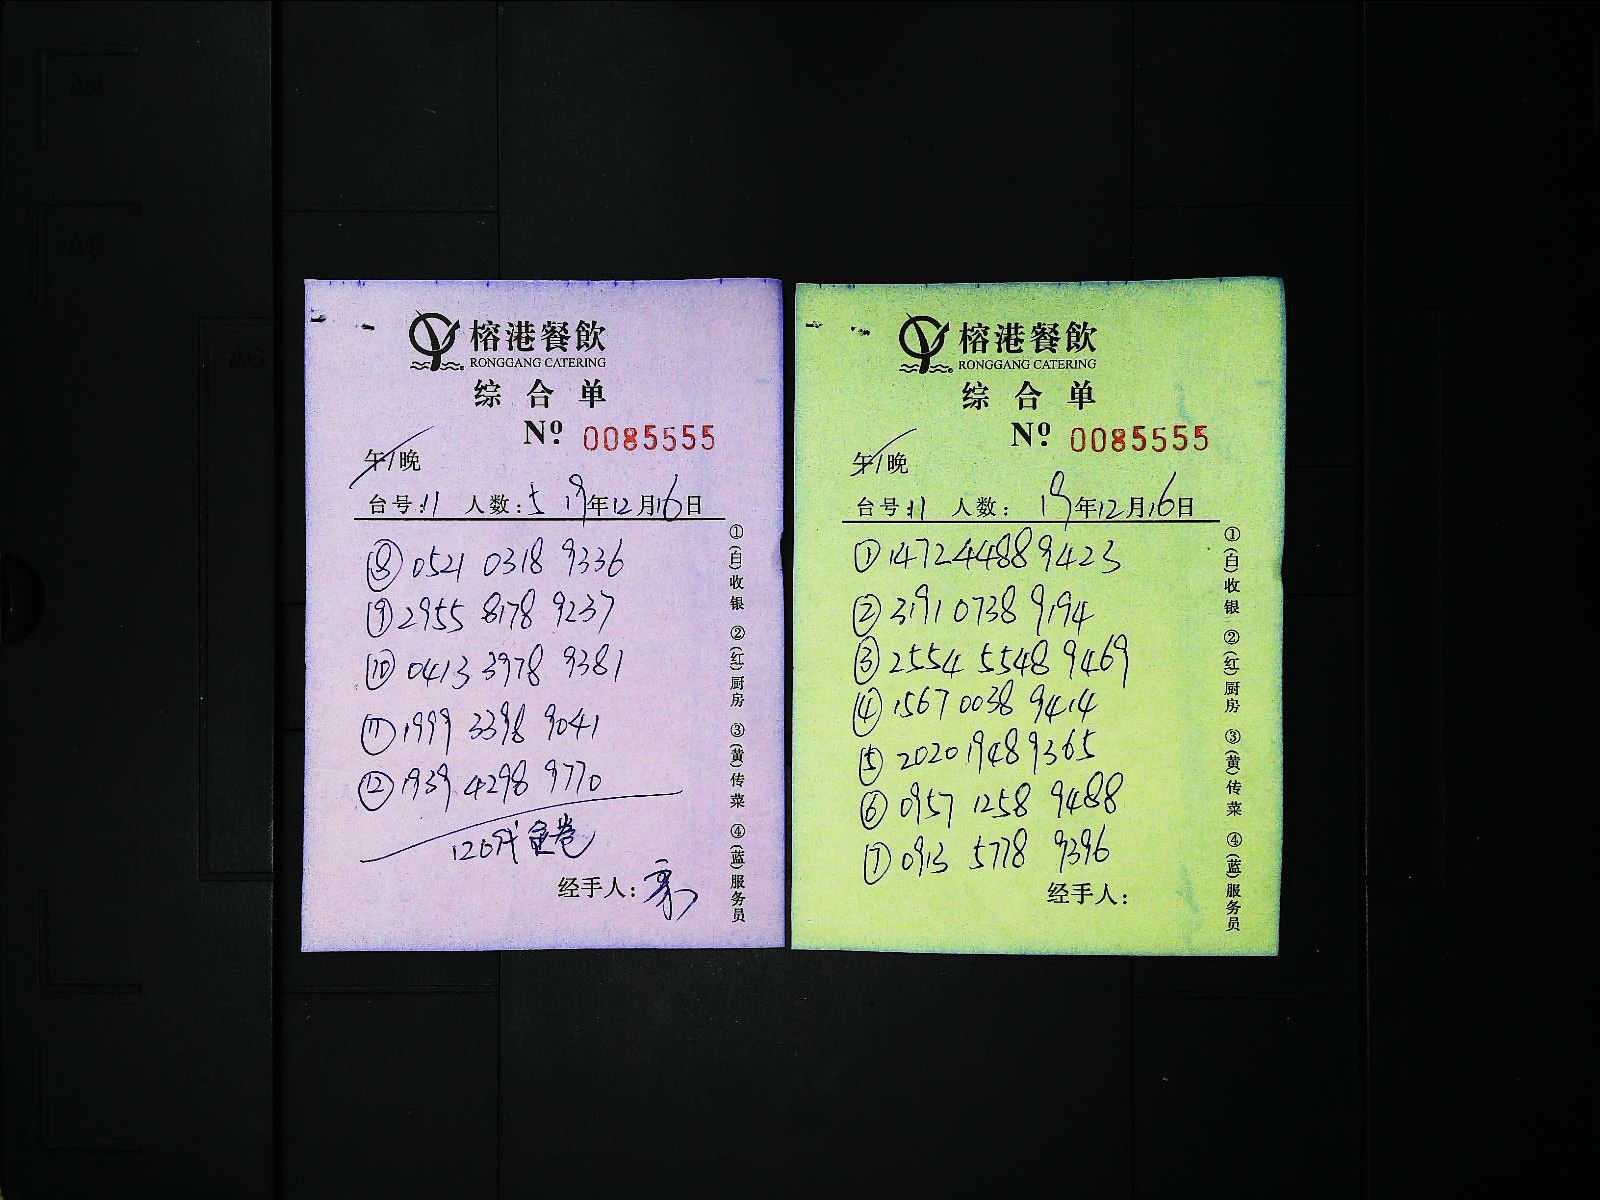 榕港餐飲
RONGGANG CATERING
综合单
Nº 0085555
午/晚
台号:11 人数:5 19年12月16日
⑧ 0521 0318 9336
⑨ 2955 8178 9237
⑩ 0413 3978 9381
⑪ 1999 3398 9041
⑫ 1939 4298 9770
120代金卷
经手人:
①(自)收银 ②(红)厨房 ③(黄)传菜 ④(蓝)服务员
榕港餐飲
RONGGANG CATERING
综合单
Nº 0085555
午/晚
台号:11 人数: 19年12月16日
① 1472 4488 9423
② 3191 0738 9194
③ 2554 5548 9469
④ 1567 0038 9414
⑤ 2020 1948 9365
⑥ 0957 1258 9488
⑦ 0913 5778 9396
经手人:
①(自)收银 ②(红)厨房 ③(黄)传菜 ④(蓝)服务员